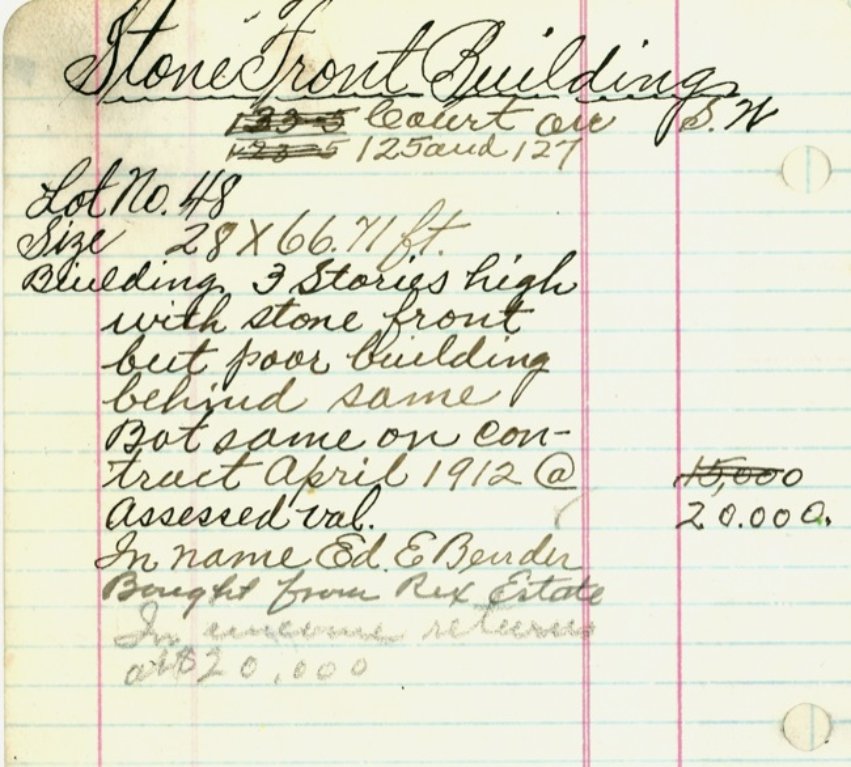 Stone Front Building
133-5 Court Av S.W
123-5 125 and 127
Lot No. 48
Size 28 X 66.71 ft.
Building 3 Stories high
with stone front
but poor building
behind same
Bot same on con-
tract April 1912 @ 15,000
Assessed val. 20.000.
In name Ed. E Bender
Bought from Rex Estate
In income returns
at $20.000